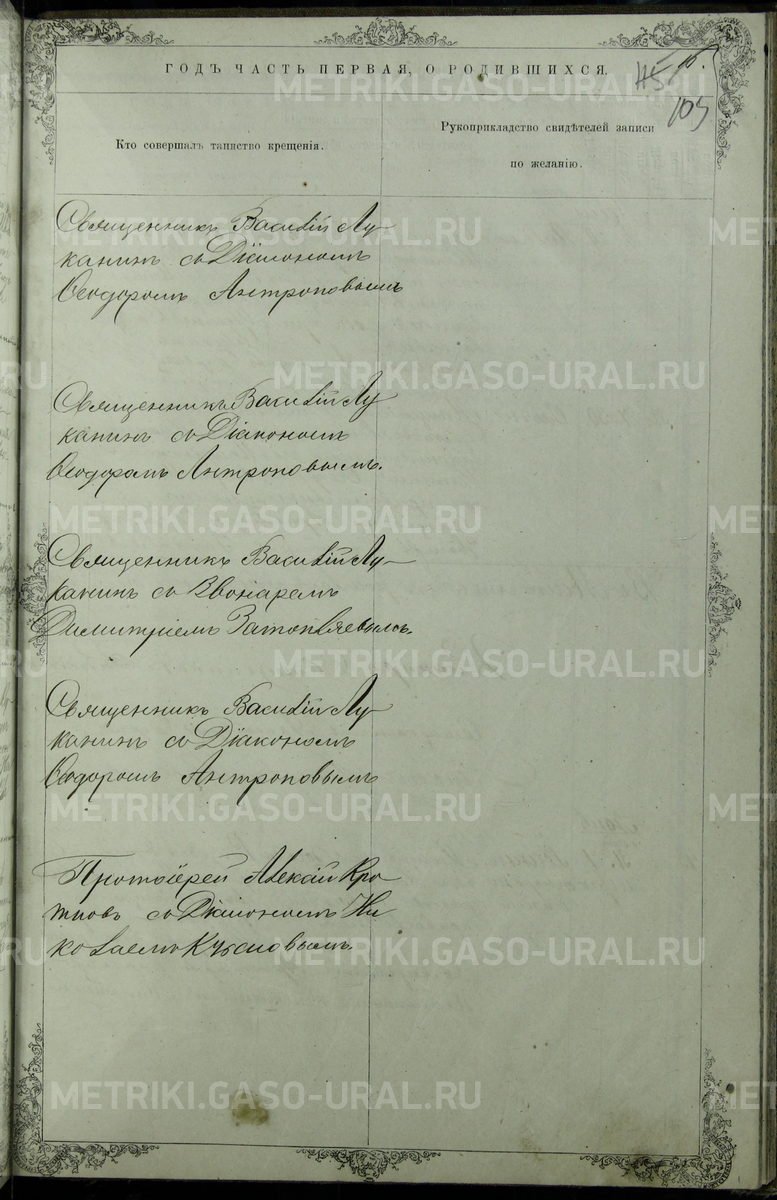 ГОДЪ ЧАСТЬ ПЕРВАЯ, О РОДИВШИХСЯ.
45
105
Кто совершалъ таинство крещенія.
Рукоприкладство свидѣтелей записи
по желанію.
Священникъ Василій Лу-
канинъ съ Діакономъ
Ѳеодоромъ Антроповымъ
Священникъ Василій Лу
канинъ съ Діакономъ
Ѳеодоромъ Антроповымъ.
Священникъ Василій Лу-
канинъ съ Звонаремъ
Димитріемъ
Священникъ Василій Лу-
канинъ съ Діакономъ
Ѳеодоромъ Антроповымъ
Протоіерей Алексій Кро
съ Діакономъ Ни
колаемъ
METRIKI.GASO-URAL.RU